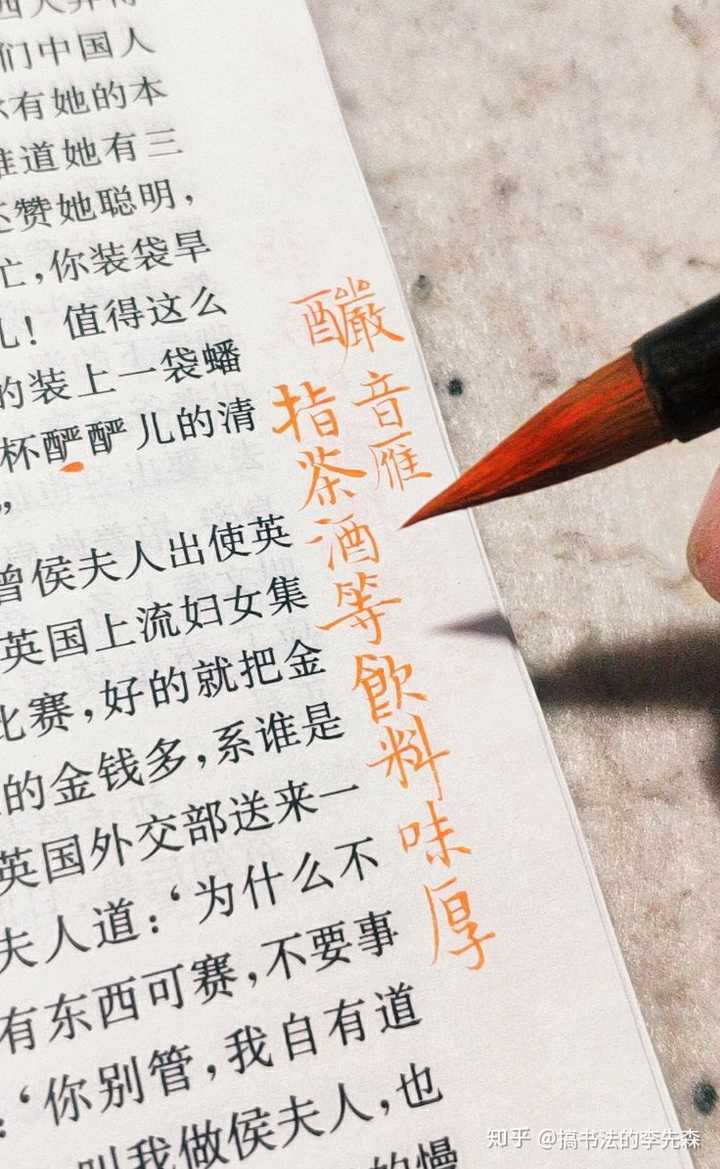 们中国人
有她的本
道她有三
赞她聪明，
，你装袋旱
儿！值得这么
的装上一袋蟠
杯酽酽儿的清
”
曾侯夫人出使英
英国上流妇女集
比赛，好的就把金
的金钱多，系谁是
英国外交部送来一
夫人道：‘为什么不
有东西可赛，不要事
：‘你别管，我自有道
叫我做侯夫人，也
的慢
釅
音雁
指茶酒等飲料味厚
知乎 @搞书法的李先森